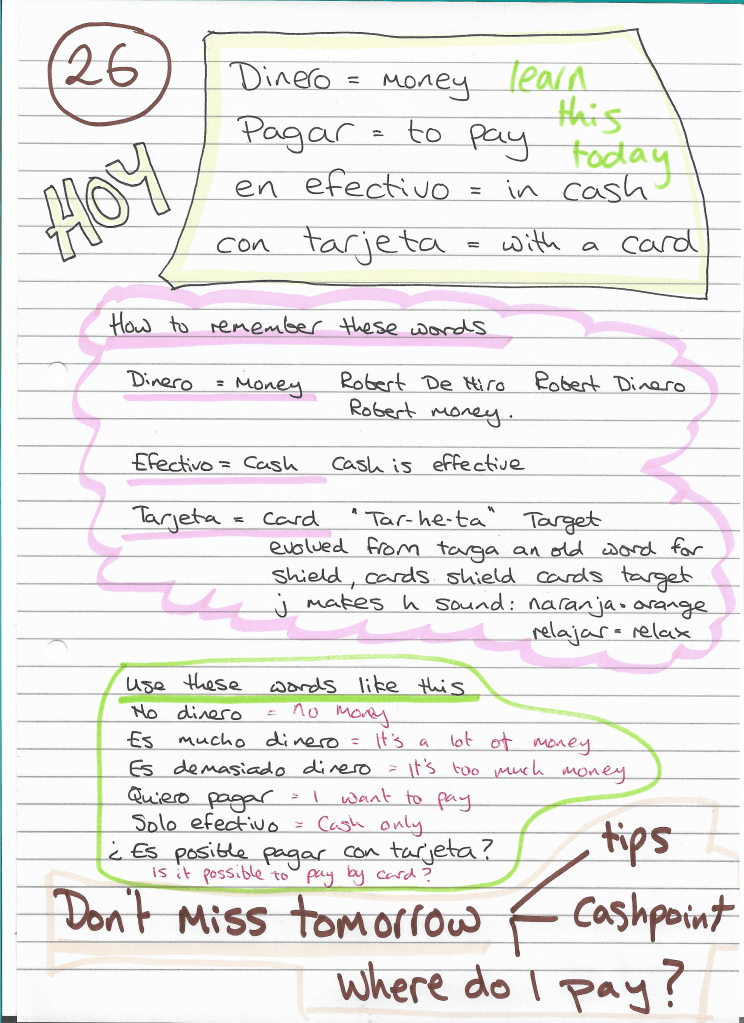 26
Dinero = money
learn
this
today
Pagar = to pay
en efectivo = in cash
con tarjeta = with a card
HOY
How to remember these words
Dinero = Money Robert De Niro Robert Dinero
Robert money.
Efectivo = Cash Cash is effective
Tarjeta = Card "Tar-he-ta" Target
evolved from targa an old word for
shield, cards shield cards target
j makes h sound: naranja = orange
relajar = relax
Use these words like this
No dinero = no money
Es mucho dinero = It's a lot of money
Es demasiado dinero = It's too much money
Quiero pagar = I want to pay
Solo efectivo = Cash only
¿ Es posible pagar con tarjeta?
Is it possible to pay by card?
Don't miss tomorrow
tips
Cashpoint
Where do I pay?